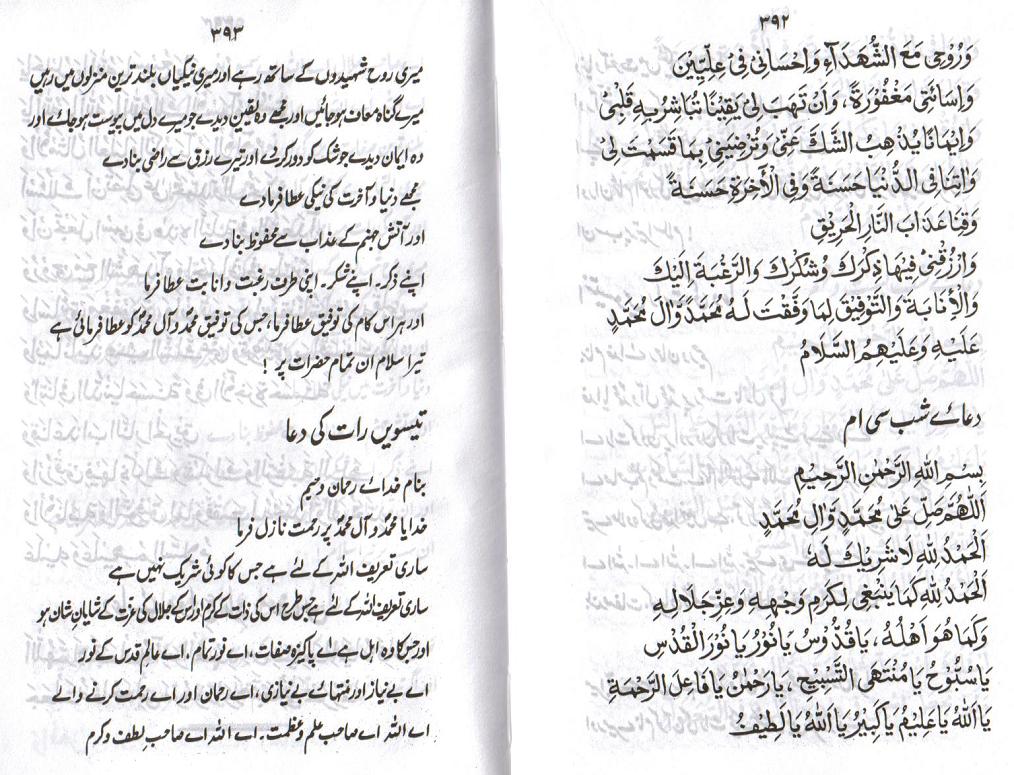 ۳۹۲
وَرُوْحِىْ مَعَ الشُّهَدَآءِ وَاِحْسَانِىْ فِىْ عِلِّيِّيْنَ
وَاِسَائَتِىْ مَغْفُوْرَةً، وَاَنْ تَهَبَ لِىْ يَقِيْنًا تُبَاشِرُ بِهٖ قَلْبِىْ
وَاِيْمَانًا يُذْهِبُ الشَّكَّ عَنِّىْ وَتُرْضِيَنِىْ بِمَا قَسَمْتَ لِىْ
وَاٰتِنَا فِى الدُّنْيَا حَسَنَةً وَفِى الْاٰخِرَةِ حَسَنَةً
وَقِنَا عَذَابَ النَّارِ الْحَرِيْقِ
وَارْزُقْنِىْ فِيْهَا ذِكْرَكَ وَشُكْرَكَ وَالرَّغْبَةَ اِلَيْكَ
وَالْاِنَابَةَ وَالتَّوْفِيْقَ لِمَا وَفَّقْتَ لَهٗ مُحَمَّدًا وَّاٰلَ مُحَمَّدٍ
عَلَيْهِ وَعَلَيْهِمُ السَّلَامُ
دعائے شب سی ام
بِسْمِ اللّٰهِ الرَّحْمٰنِ الرَّحِيْمِ
اَللّٰهُمَّ صَلِّ عَلٰى مُحَمَّدٍ وَّاٰلِ مُحَمَّدٍ
اَلْحَمْدُ لِلّٰهِ لَا شَرِيْكَ لَهٗ
اَلْحَمْدُ لِلّٰهِ كَمَا يَنْبَغِىْ لِكَرَمِ وَجْهِهٖ وَعِزِّ جَلَالِهٖ
وَكَمَا هُوَ اَهْلُهٗ، يَا قُدُّوْسُ يَا نُوْرُ يَا نُوْرَ الْقُدْسِ
يَا سُبُّوْحُ يَا مُنْتَهَى التَّسْبِيْحِ، يَا رَحْمٰنُ يَا فَاعِلَ الرَّحْمَةِ
يَا اَللّٰهُ يَا عَلِيْمُ يَا كَبِيْرُ يَا اَللّٰهُ يَا لَطِيْفُ
۳۹۳
میری روح شہیدوں کے ساتھ رہے اور میری نیکیاں بلند ترین منزلوں میں رہیں
میرے گناہ معاف ہو جائیں اور مجھے وہ یقین دیدے جو میرے دل میں پیوست ہو جائے اور
وہ ایمان دیدے جو شک کو دور کر دے اور تیرے رزق سے راضی بنا دے
مجھے دنیا و آخرت کی نیکی عطا فرما دے
اور آتش جہنم کے عذاب سے محفوظ بنا دے
اپنے ذکر۔ اپنے شکر۔ اپنی طرف رغبت و انابت عطا فرما
اور ہر اس کام کی توفیق عطا فرما، جس کی توفیق محمدؐ و آل محمدؐ کو عطا فرمائی ہے
تیرا سلام ان تمام حضرات پر !
تیسویں رات کی دعا
بنام خدائے رحمان و رحیم
خدایا محمدؐ و آل محمدؐ پر رحمت نازل فرما
ساری تعریف اللہ کے لئے ہے جس کا کوئی شریک نہیں ہے
ساری تعریف اللہ کے لئے ہے جس طرح اس کی ذات کے کرم اور اس کے جلال کی عزت کے شایانِ شان ہو
اور جس کا وہ اہل ہے، اے پاکیزہ صفات، اے نور تمام، اے عالم قدس کے نور
اے بے نیاز اور منتہائے بے نیازی، اے رحمان اور اے رحمت کرنے والے
اے اللہ اے صاحب علم و عظمت۔ اے اللہ اے صاحب لطف و کرم